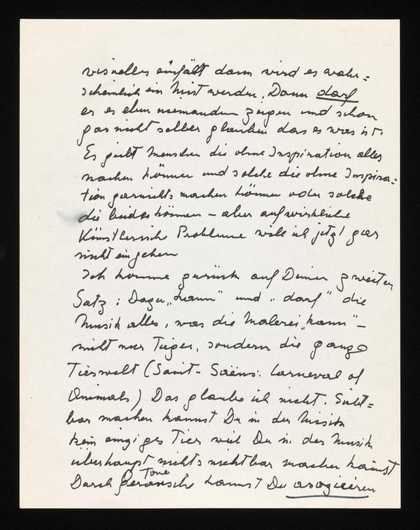 visuelles einfällt dann wird es wahr=
scheinlich ein Mist werden. Dann darf
er es eben niemandem zeigen und schon
gar nicht selber glauben das es was ist
Es giebt Menschen die ohne Inspiration alles
machen können und solche die ohne Inspira=
tion garnichts machen können oder solche
die beides können – aber auf wirkliche
Künstlerische Probleme will ich jetzt gar
nicht eingehen
Ich komme zurück auf Deinen zweiten
Satz: Dagu „kann" und „darf" die
Musik alles, was die Malerei „kann" –
nicht nur Tiger, sondern die ganze
Tierwelt (Saint-Saëns: Carneval of
Animals) Das glaube ich nicht. Sicht=
bar machen kannst Du in der Musik
kein einziges Tier weil Du in der Musik
überhaupt nichts sichtbar machen kannst
Durch Geräusche Töne kannst Du asoziieren